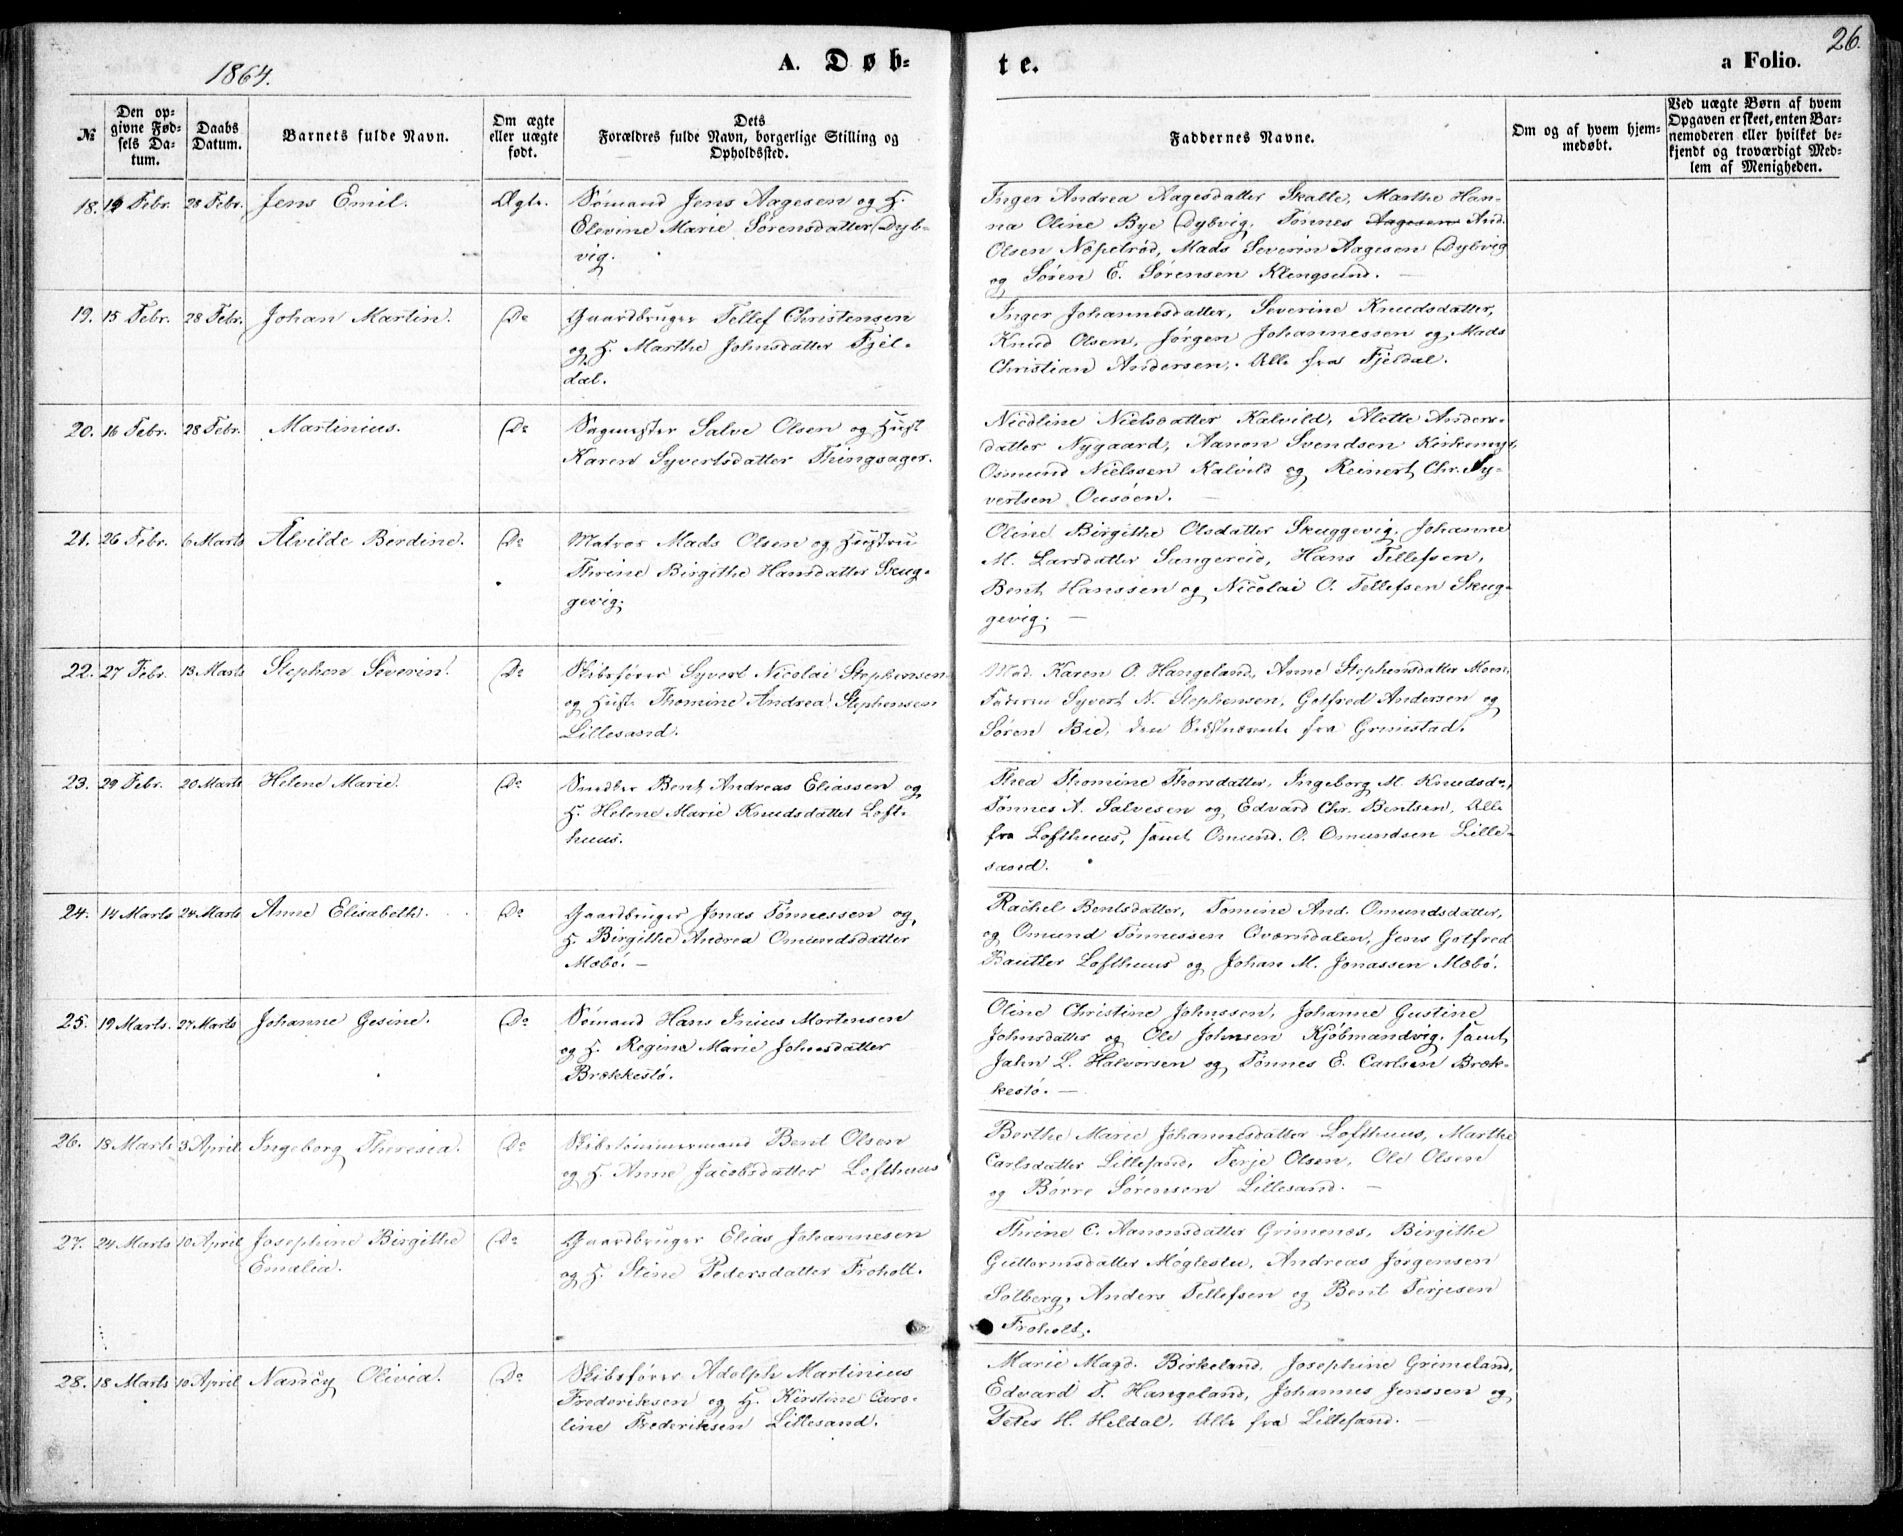 1864.
A. Døb-
te.
a Folio.
26.
№
Den op-
givne Fød-
sels Da-
tum.
Daabs
Datum.
Barnets fulde Navn.
Om ægte
eller uægte
født.
Dets
Forældres fulde Navn, borgerlige Stilling og
Opholdssted.
Faddernes Navne.
Om og af hvem hjem-
medøbt.
Ved uægte Børn af hvem
Opgaven er skeet, enten Bar-
nemoderen eller hvilket be-
kjendt og troværdigt Med-
lem af Menigheden.
18. Febr. 28 Febr. Jens Emil. Ægte.
Sømand Jens Aagesen og H.
Elevine Marie Sørensdatter Dyb-
vig.
Inger Andrea Aagesdatter Skalle, Marthe Han-
na Oline Bye Dybvig. Tønnes Aagesen And.
Olsen Næpetrød, Mads Severin Aagesen Dybvig
og Søren E. Sørensen Klengsund. —
19. 15 Febr. 28 Febr. Johan Martin. Do
Gaardbruger Tellef Christensen
og H. Marthe Johnsdatter Fjel-
dal.
Inger Johannesdatter, Severine Knudsdatter,
Knud Olsen, Jørgen Johannessen og Mads
Christian Andersen. Alle fra Fjeldal.
20. 16 Febr. 28 Febr. Martinius. Do
Sagmester Salve Olsen og Hust.
Karen Syvertsdatter Thingsager.
Nicoline Nielsdatter Kalvild, Alette Anders-
datter Nygaard, Aanon Svendsen Kirkemyr,
Osmund Nielssen Kalvild og Reinert Chr. Sy-
vertsen Ousöen. —
21. 26 Febr. 6 Marts Alvilde Berdine. Do
Matros Mads Olsen og Hustru
Thrine Birgithe Hansdatter Skug-
gevig.
Oline Birgithe Olsdatter Skuggevig, Johanne
M. Larsdatter Sangereid, Hans Tellefsen,
Bent Hanssen og Nicolai O. Tellefsen Skug-
gevig. —
22. 27 Febr. 13 Marts Stephen Severin. Do
Skibsfører Syvert Nicolai Stephensen
og Hust. Thomine Andrea Stephensen
Lillesand.
Mad. Karen O. Hangeland, Anne Stephensdatter Moen,
Faderen Syvert N. Stephensen, Gotfred Andersen og
Søren Bie, den Sidstnævnte fra Grimstad.
23. 29 Febr. 20 Marts Helene Marie. Do
Snedker Bent Andreas Eliassen og
H. Helene Marie Knudsdatter Loft-
huus.
Thea Thomine Thorsdatter, Ingeborg M. Knudsdr,
Tønnes A. Salvesen og Edvard Chr. Bentsen, Alle
fra Lofthuus, samt Omund. O. Omundsen Lille-
sand.
24. 14 Marts 24 Marts Anne Elisabeth. Do
Gaardbruger Jonas Tønnessen og
H. Birgithe Andrea Omundsdatter
Mæbö. —
Rachel Bentsdatter, Tomine And. Omundsdatter,
og Omund Tønnessen Qværndalen, Jens Gotfred
Bautler Lofthuus og Johan M. Jonassen Mæbö.
25. 19 Marts. 27 Marts Johanne Gesine. Do
Sømand Hans Inius Mortensen
og H. Regine Marie Johnsdatter
Brækkestö.
Oline Christine Johnssen, Johanne Gustine
Johnsdatter og Ole Johnsen Kjöbmandvig, samt
Jahn L. Halvorsen og Tønnes E. Carlsen Bræk-
kestö. —
26. 18 Marts 3 April Ingeborg Theresia. Do
Skibstømmermand Bent Olsen
og H. Anne Jacobsdatter Lofthuus
Berthe Marie Johannesdatter Lofthuus, Marthe
Carlsdatter Lillesand, Terje Olsen, Ole Olsen
og Börre Sørensen Lillesand. —
27. 24 Marts 10 April Josephine Birgithe
Emalia. Do
Gaardbruger Elias Johannesen
og H. Stine Pedersdatter Froholt.
Thrine C. Aanonsdatter Grimenes, Birgithe
Guttormsdatter Möglestu, Andreas Jørgensen
Solberg, Anders Tellefsen og Bent Terjesen
Froholt.
28. 18 Marts 10 April Nancy Olivia. Do
Skibsfører Adolph Martinius
Frederiksen og H. Kirstine Caro-
line Frederiksen Lillesand.
Marie Magd. Birkeland, Josephine Grimeland,
Edvard T. Hangeland, Johannes Jenssen og
Peter H. Heldal, Alle fra Lillesand.